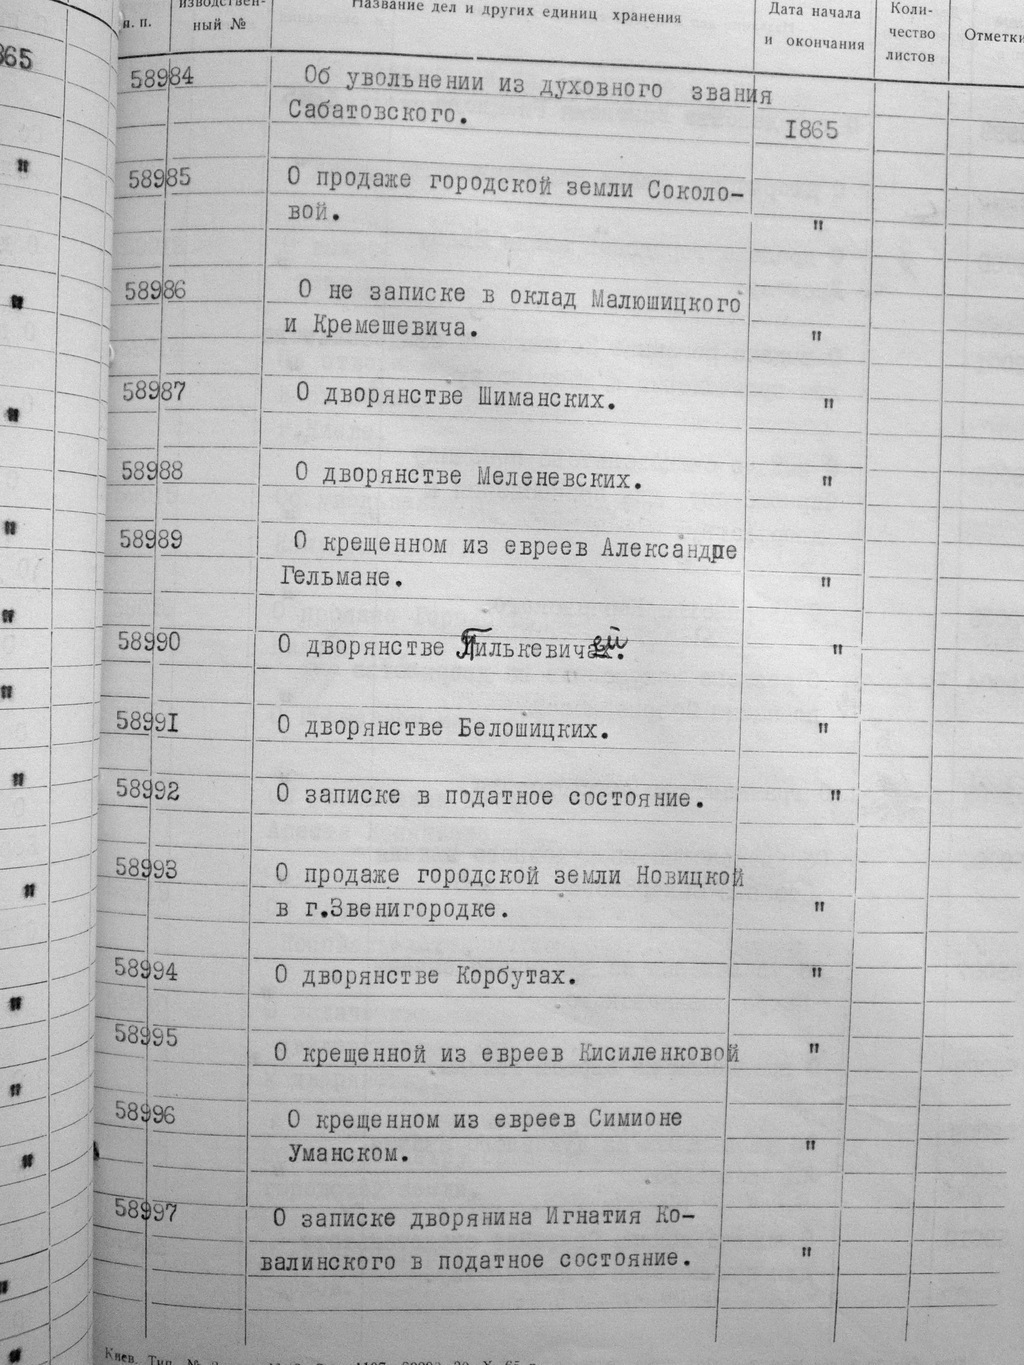 п. п.
ный №
Название дел и других единиц хранения
Дата начала
и окончания
Коли-
чество
листов
Отметки
865
58984 Об увольнении из духовного звания
Сабатовского.
1865
58985 О продаже городской земли Соколо-
вой. "
58986 О не записке в оклад Малюшицкого
и Кремешевича. "
58987 О дворянстве Шиманских. "
58988 О дворянстве Меленевских. "
58989 О крещенном из евреев Александре
Гельмане. "
58990 О дворянстве Пилькевичей. "
58991 О дворянстве Белошицких. "
58992 О записке в податное состояние. "
58993 О продаже городской земли Новицкой
в г.Звенигородке. "
58994 О дворянстве Корбутах. "
58995
О крещенной из евреев Кисиленковой "
58996 О крещенном из евреев Симионе
Уманском. "
58997 О записке дворянина Игнатия Ко-
валинского в податное состояние. "
Киев. Тип. №